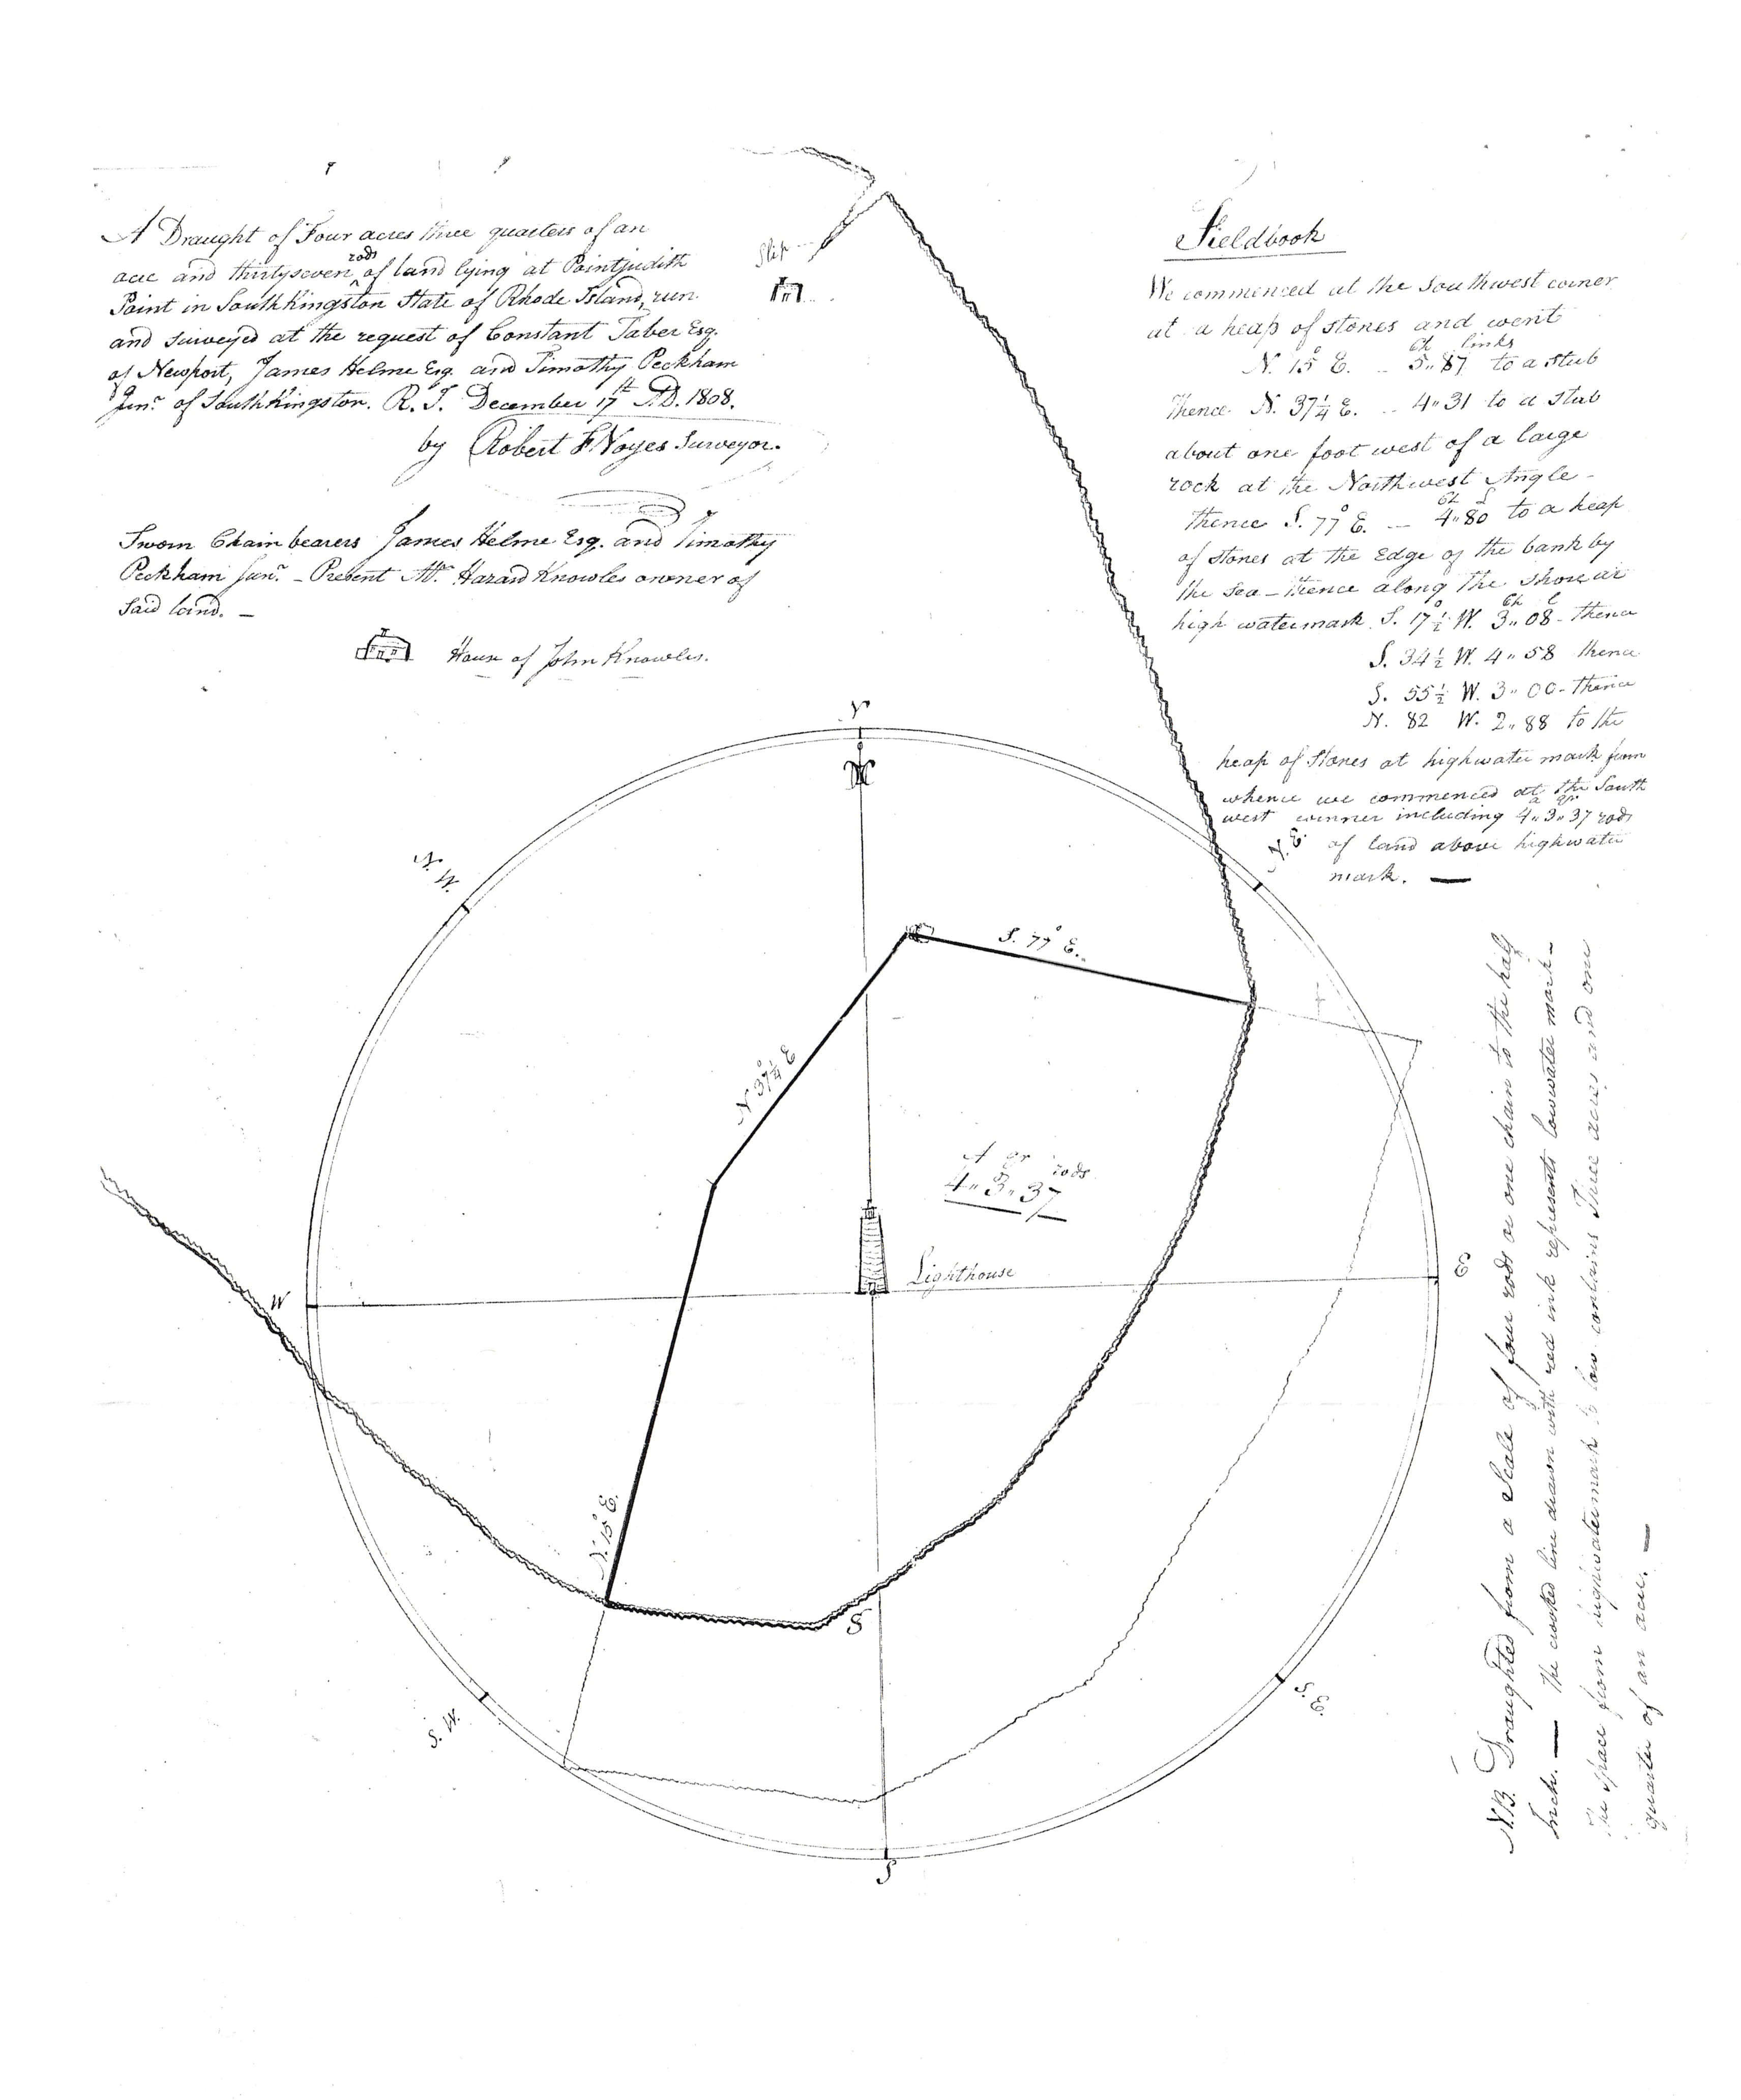 A Draught of Four acres three quarters of an
acre and thirtyseven rods of land lying at Pointjudith
Point in SouthKingston State of Rhode Island, run
and surveyed at the request of Constant Taber Esq.
of Newport, James Helme Esq. and Timothy Peckham
Junr. of SouthKingston. R. I. December 17th A.D. 1808.
by Robert F. Noyes Surveyor.
Sworn Chain bearers James Helme Esq. and Timothy
Peckham Junr. – Present Mr. Hazard Knowles owner of
said land. –
House of John Knowles.
Slip
Fieldbook
We commenced at the Southwest corner
at a heap of stones and went
Ch links
N. 15° E. – 5„87 to a stub
Thence N. 37¼ E. – 4„31 to a stub
about one foot west of a large
rock at the Northwest Angle –
Ch L
thence S. 77° E. – 4„80 to a heap
of stones at the edge of the bank by
the sea – thence along the shore at
Ch L
high watermark S. 17°½ W. 3„08 – thence
S. 34½ W. 4„58 thence
S. 55½ W. 3„00 – thence
N. 82 W. 2„88 to the
heap of stones at highwater mark from
whence we commenced at the South
a qr
west corner including 4„3„37 rods
of land above highwater
mark. —
N
N. W.
N. E.
S. 77° E.
N 37°¼ E
A qr rods
4„3„37
Lighthouse
W
E
N. 15° E.
S
S. W.
S. E.
S
N.B. Draughted from a Scale of four rods or one chain to the half
Inch. — The dotted line drawn with red ink represents lowwater mark –
The space from highwatermark to low contains Three acres and one
quarter of an acre. —